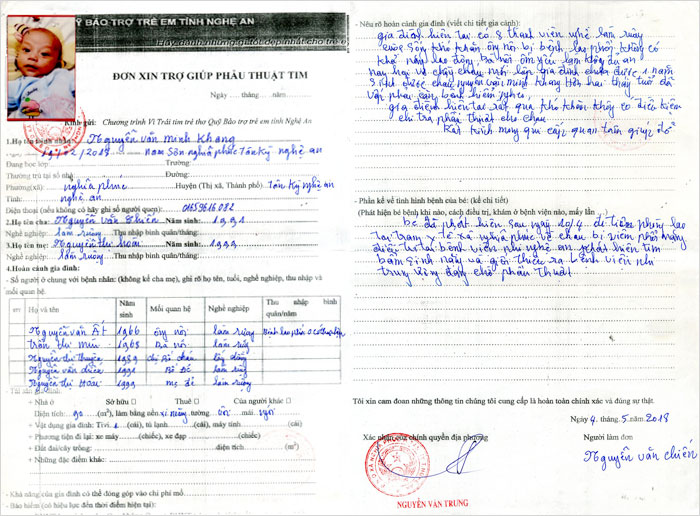 QUỸ BẢO TRỢ TRẺ EM TỈNH NGHỆ AN
Hãy dành những gì tốt đẹp nhất cho trẻ em
ĐƠN XIN TRỢ GIÚP PHẪU THUẬT TIM
Ngày .... tháng....năm....
Kính gửi: Chương trình Vì Trái tim trẻ thơ Quỹ Bảo trợ trẻ em tỉnh Nghệ An
1.Họ tên bệnh nhân: Nguyễn văn Minh Khang
19/02/2018 nam Sơn nghĩa phúc Tân Kỳ nghệ an
Đang học lớp Trường:
Thường trú tại số nhà Đường:
Phường(xã) nghĩa phúc Huyện (Thị xã, Thành phố) Tân Kỳ nghệ an
Tỉnh: nghệ an
Điện thoại (nếu không có hãy ghi số người quen):
2.Họ tên cha: Nguyễn văn Chiến Năm sinh: 1991
Nghề nghiệp: làm ruộng Thu nhập bình quân/tháng:
3.Họ tên mẹ: Nguyễn thị Hoài Năm sinh: 1993
Nghề nghiệp: làm ruộng Thu nhập bình quân/tháng:
4.Hoàn cảnh gia đình:
- Số người ở chung với bệnh nhân: (không kể cha mẹ), ghi rõ họ tên, tuổi, nghề nghiệp, thu nhập và
mối quan hệ:
STT Họ và tên Năm sinh Mối quan hệ Nghề nghiệp Thu nhập bình quân/năm
Nguyễn văn Ất 1966 ông nội làm ruộng Bệnh lao phổi
trần thị 1968 Bà nội làm ruộng
Nguyễn thị 1989
Nguyễn văn chiến 1991 Bố đẻ làm ruộng
Nguyễn thị Hoài 1993 mẹ đẻ làm ruộng
- Tài sản gia đình:
+ Nhà ở Sở hữu ☐ Thuê ☐ Của người khác ☐
Diện tích: 90 (m²), làm bằng nền xi măng tường mái
+ Vật dụng gia đình: Tivi 1 (cái), tủ lạnh (cái), máy tính (cái)
+ Phương tiện đi lại: xe máy (chiếc), xe đạp (chiếc)
+ Đất đai/cây trồng: diện tích (m²)
+ Những đặc điểm khác:
- Khả năng của gia đình có thể đóng góp vào chi phí mổ
- Bảo hiểm (có hiệu lực đến thời điểm hiện tại):
- Nêu rõ hoàn cảnh gia đình (viết chi tiết gia cảnh):
gia đình hiện tại có 8 thành viên nghề làm ruộng
cuộc sống khó khăn ông nội bị bệnh lao phổi không có
khả năng lao động Bà nội ốm yếu
nay hai vợ chồng cháu mới lập gia đình chưa được 1 năm
sinh được cháu nguyễn văn minh khang hơn hai tháng tuổi đã
với phải căn bệnh hiểm nghèo
gia đình hiện tại rất quá khó khăn không có điều kiện
chi trả phẫu thuật cho cháu
Rất kính mong quí cấp quan tâm giúp đỡ
- Phần kể về tình hình bệnh của bé: (kể chi tiết)
(Phát hiện bé bệnh khi nào, cách điều trị, khám ở bệnh viện nào, mấy lần
bé đã phát hiện sau ngày 10/4 đi tiêm phòng lao
tại trạm y tế xã nghĩa phúc về cháu bị viêm phổi nặng
điều trị tại bệnh viện nhi nghệ an phát hiện tim
bẩm sinh nặng và giới thiệu ra bệnh viện nhi
trung ương đang chờ phẫu thuật
Tôi xin cam đoan những thông tin chúng tôi cung cấp là hoàn toàn chính xác và đúng sự thật.
Ngày 4 tháng 5 năm 2018
Xác nhận của chính quyền địa phương Người làm đơn
Nguyễn văn chiến
NGUYỄN VĂN TRUNG